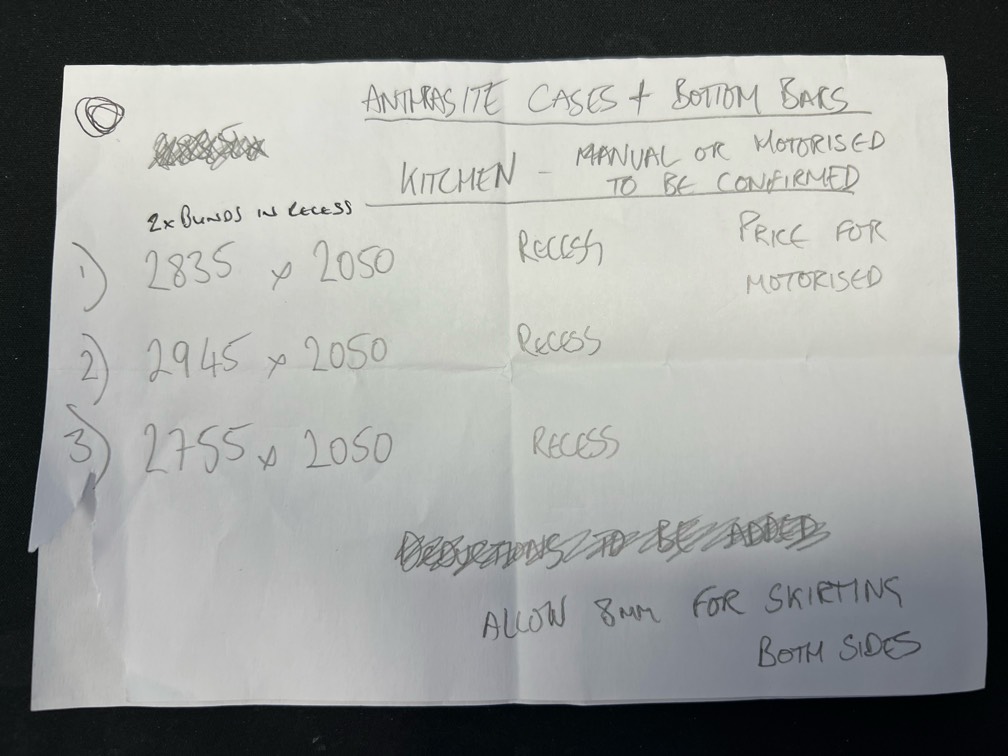 ANTHRASITE CASES + BOTTOM BARS
KITCHEN - MANUAL OR MOTORISED
TO BE CONFIRMED
2x BLINDS IN RECESS
1) 2835 x 2050 RECESS PRICE FOR
MOTORISED
2) 2945 x 2050 RECESS
3) 2755 x 2050 RECESS
DEDUCTIONS TO BE ADDED
ALLOW 8mm FOR SKIRTING
BOTH SIDES